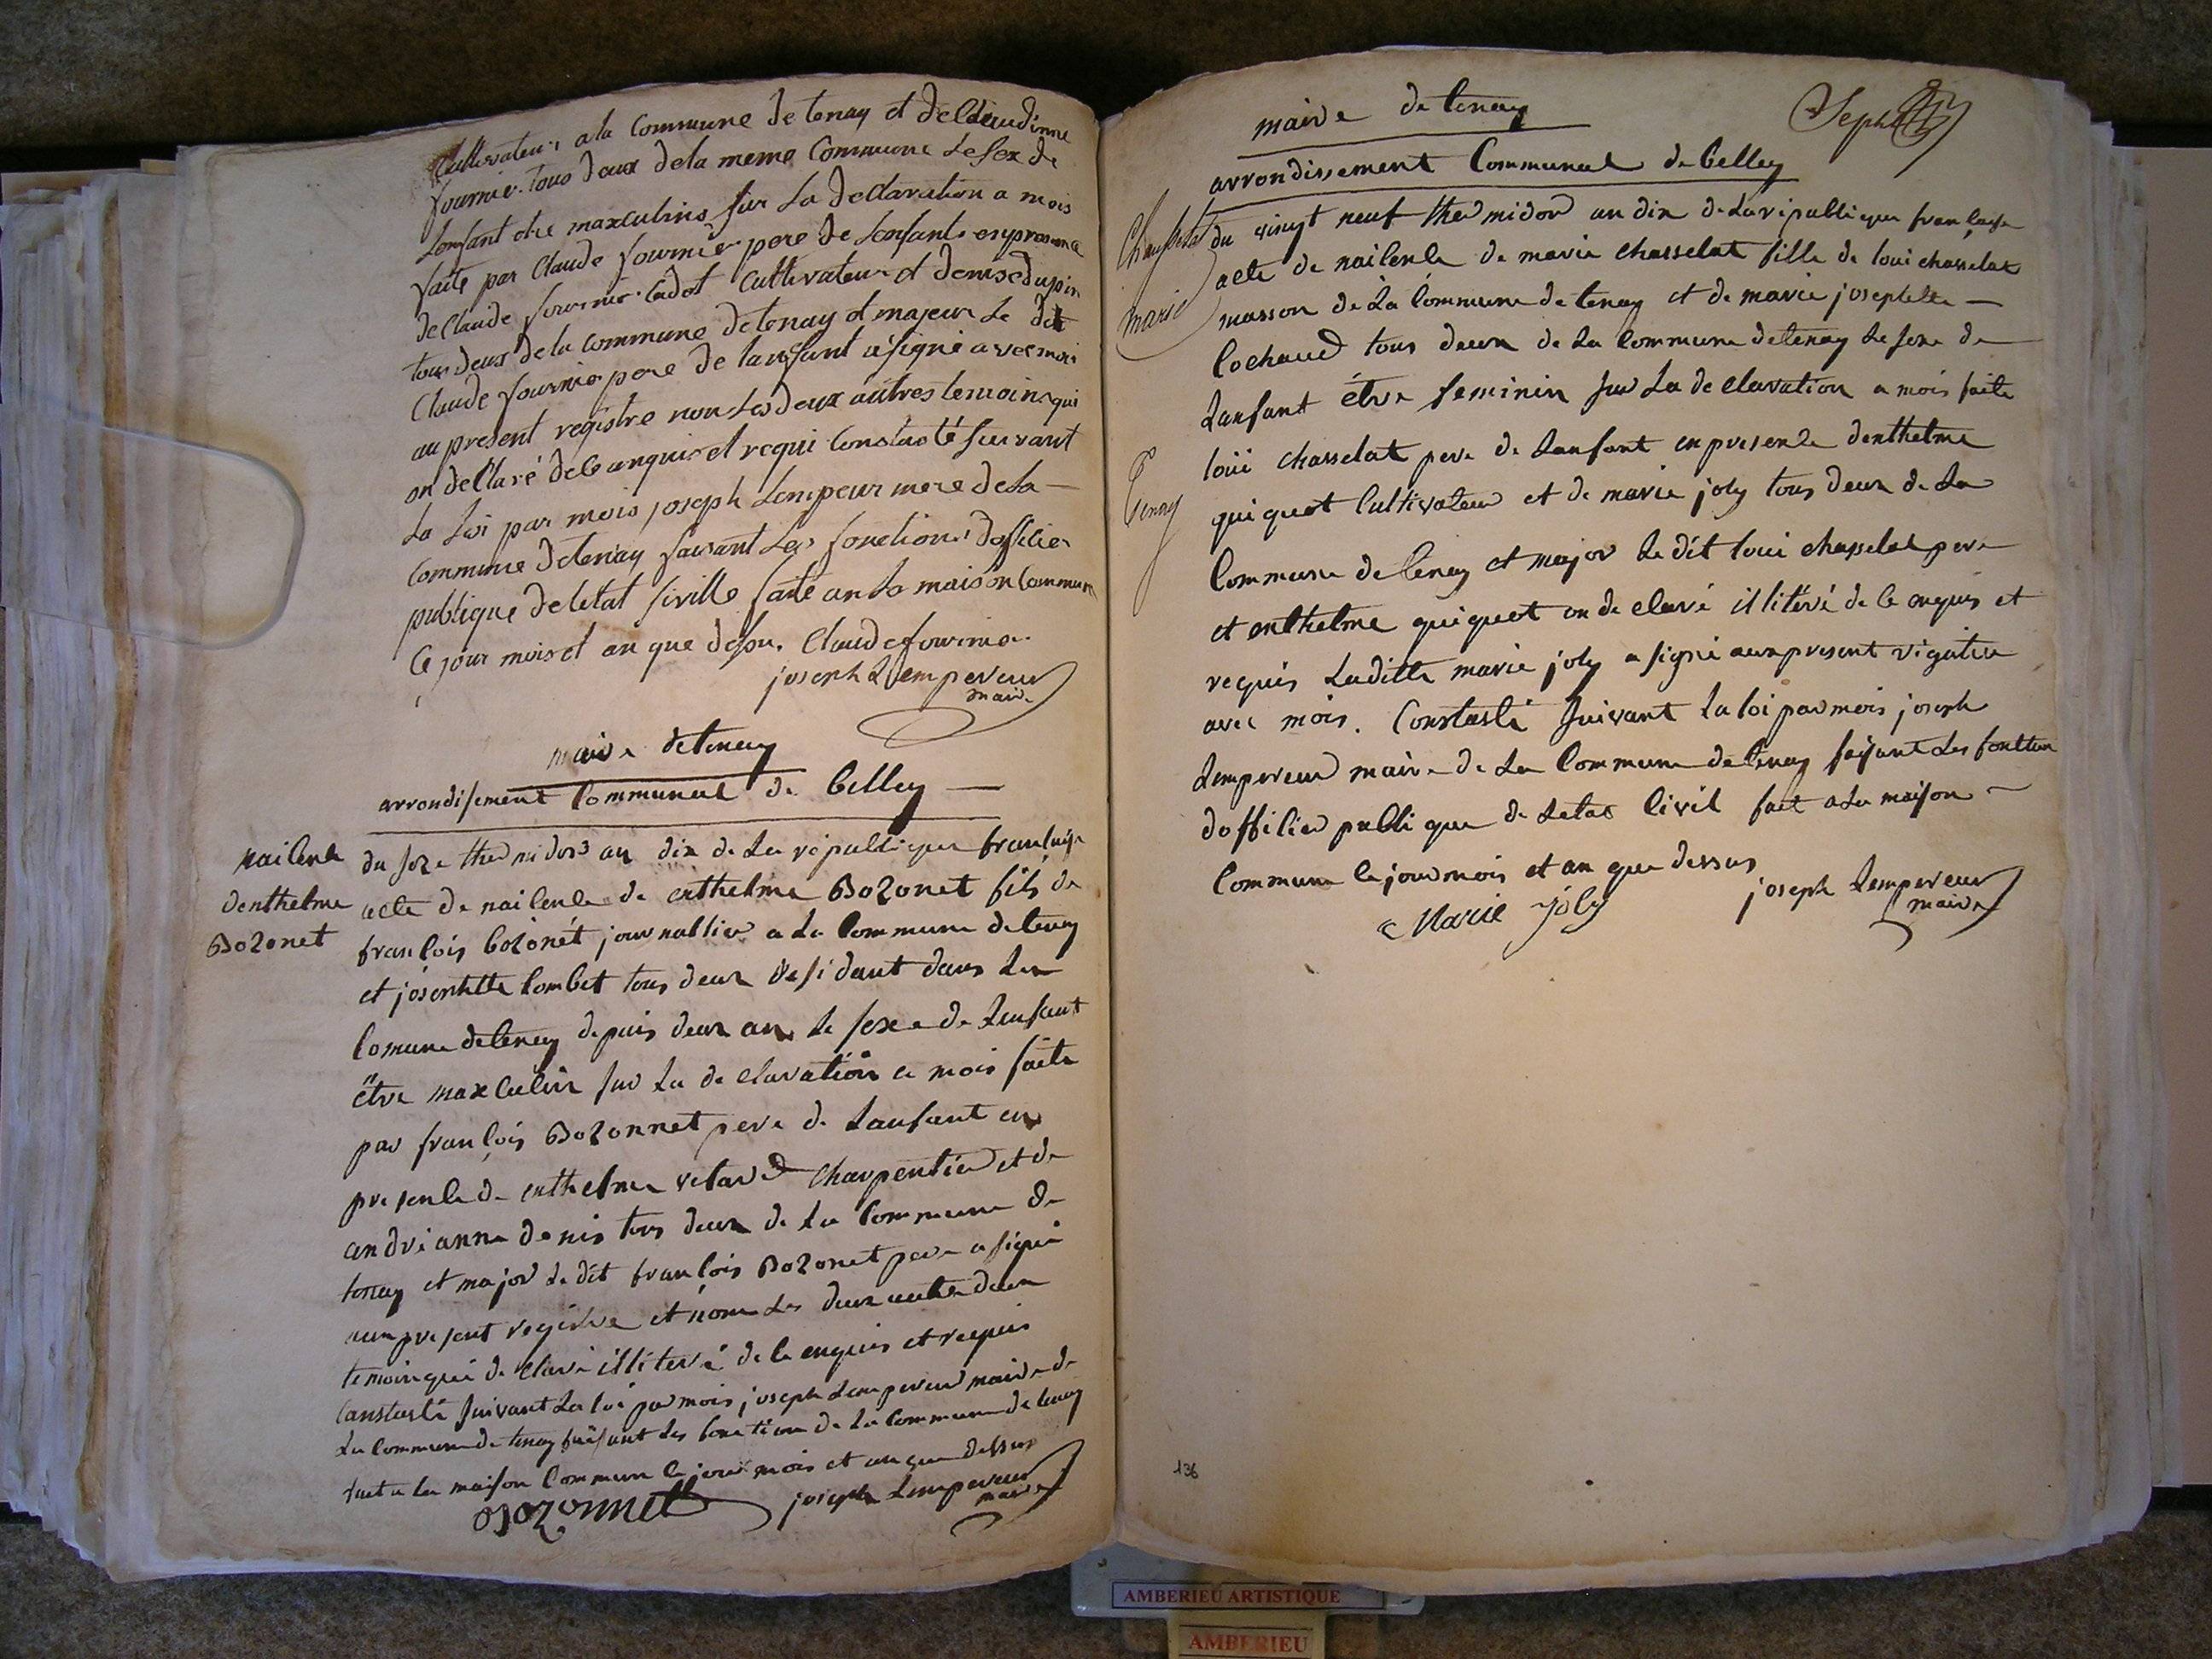 Cultivateur a la Commune de tenay et de Claudinne
fournier tous deux de la meme Commune Le sex de
Lenfant etre maxculins sur La declaration a mois
faite par Claude fournier pere de Lenfant en presence
de Claude fournier Cadot Cultivateur et denise dupin
tous deux de la commune de tenay et majeur Le dit
Claude fournier pere de lanfant a signé avec moi
au present registre non Les deux autres temoins qui
on declaré de ce enquis et requi Constaté suivant
La Loi par mois joseph Lempeur mere de La
Commune de tenay faisant Les fonctions dofficier
publique de letat siville faite an La maison Commun
Ce jour mois et an que desu. Claude fournier
joseph Lempereur
maire
maire de tenay
arrondisement Communal de Belley
naicence
denthelme
Bozonet
du seze thermidor an dix de La republique francaise
acte de naicence de enthelme Bozonet fils de
francois bozonét journallier a La Commune de tenay
et josephtte Combet tous deux residant dans La
Comune de tenay depuis deux an Le sexe de Lenfant
être maxculin sur La declaration a mois faite
par françois Bozonnet pere de Lanfant en
presence de enthelme vetard Charpentier et de
andrianne denis tous deux de La Commune de
tenay et major Le dit francois Bozonet pere a signé
aux present registre et nom Les deux autre deux
temoin qui declaré illiteré de ce enquis et requis
Constasté suivant La loi par mois joseph Lempereur maire de
La Commune de tenay faisant Les fonction de La Commune de tenay
fait a La maison Commun Ce jour mois et an que dessus
Bozonnet joseph Lempereur
maire
maire de tenay
arrondissement Communal de Belley
Chasselat
marie
Tenay
du vingt neuf thermidor an dix de La republique française
acte de naicence de marie chasselat fille de loui chasselat
masson de La Commune de tenay et de marie josephtte
Cochaud tous deux de La Commune de tenay Le sexe de
Lanfant étre feminin sur La declaration a mois faite
loüi chasselat pere de Lanfant en presence denthelme
quiquet Cultivateur et de marie joly tous deux de La
Commune de tenay et major Le dit loui chasselat pere
et enthelme quiquet on declaré illiteré de ce enquis et
requis Laditte marie joly a signé aux present rigistre
avec mois. Constasté suivant La loi par mois joseph
Lempereur maire de La Commune de tenay faisant Les fonction
dofficier publique de Letat Civil fait a La maison
Commune Ce jour mois et an que dessus
Marie joly joseph Lempereur
maire
136
AMBERIEU ARTISTIQUE
AMBERIEU